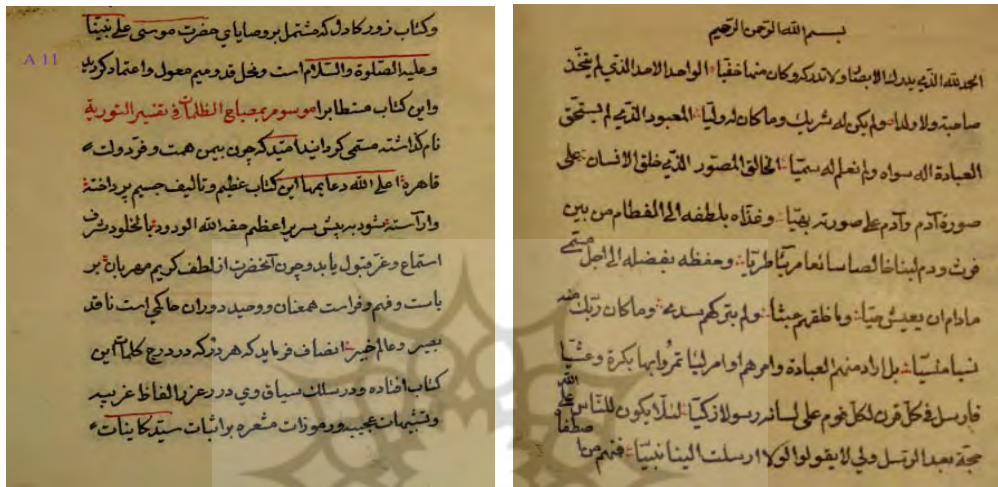 بسم الله الرحمن الرحيم
الحمد لله الذي يدرك الابصار ولا تدركه وكان منها خفيا الواحد الاحد الذي لم يتخذ
صاحبة ولا ولدا ولم يكن له شريك وما كان له وليا المعبود الذي لم يستحق
العبادة اله سواه ولم نعلم له سميا الخالق المصور الذي خلق الانسان على
صورة آدم وآدم على صورته بهيا وغذاه بلطفه الى الفطام من بين
فرث ودم لبنا خالصا سائغا مريا طريا وحفظه بفضله الى اجل
مادام ان يعيش حيا وما خلقهم عبثا ولم يتركهم سدى وما كان ربك
نسيا منسيا بل اراد منهم العبادة وامرهم اوامر بها بكرة وعشيا
فارسل في كل قرن لكل قوم على لسانه رسولا زكيا لئلا يكون للناس على الله
حجة بعد الرسل ولا يقولوا لولا ارسلت الينا نبيا فمنهم من
A 11
وكتاب كه مشتمل بر وصاياي حضرت موسى على نبينا
وعليه الصلوة والسلام است ومعول واعتماد كرديد
واين كتاب مستطاب را موسوم بمصباح الظلمات في تفسير التورية
نام گذاشته مسمى گردانيد اميد كه چون بيمن همت وفر دولت
قاهره اعلى الله دعايمها اين كتاب عظيم وتاليف جسيم پرداخته
وآراسته شود به پيش سرير اعظم حفه الله الودود بالخلود شرف
استماع وعز قبول يابد وچون آنحضرت از لطف كريم مهربان بر
ياست وفهم وفراست همعنان ووحيد دوران حاكمي است ناقد
بصير وعالم خبير انصاف فرمايد كه هر در كه در درج كلمات اين
كتاب افتاده ودر سلك سياق وي در درعزر الفاظ غريبه
وتشبيهات عجيبه ورموزات مشعره بر اثبات سيد كاينات